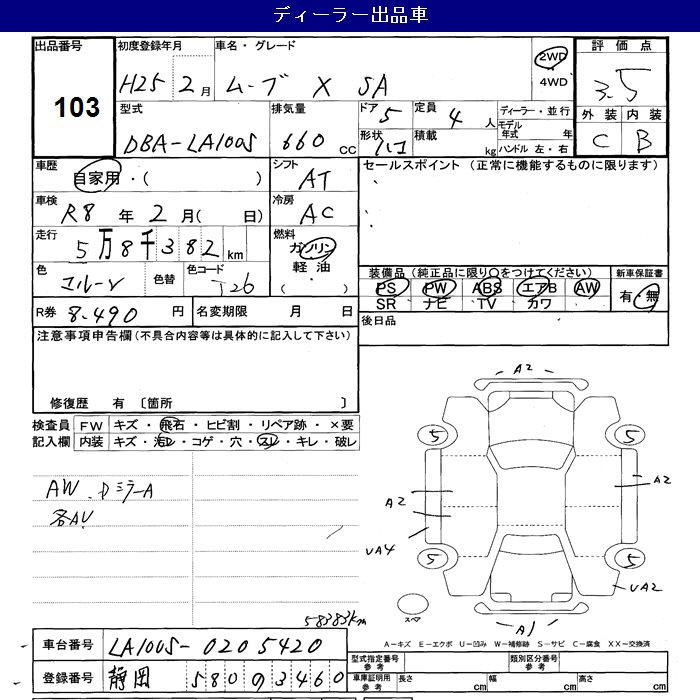 ディーラー出品車
出品番号 初度登録年月 車名・グレード 評価点
103 H25 2月 ムーブ X SA 2WD・4WD 3.5
型式 排気量 ドア 定員 ディーラー・並行 外装 内装
DBA-LA100S 660 CC 5 4人 モデル年式 年 C B
形状 ハコ 積載 kg ハンドル 左・右
車歴 自家用・( ) シフト AT セールスポイント (正常に機能するものに限ります)
車検 R8年 2月( 日) 冷房 AC
走行 5万8千382km 燃料 ガソリン 軽油 ( )
色 色替 色コード T26
装備品(純正品に限り○をつけてください) 新車保証書
PS PW ABS エアB AW 有・無
SR ナビ TV カワ
R券 8.490円 名変期限 月 日 後日品
注意事項申告欄(不具合内容等は具体的に記入して下さい)
修復歴 有 〔箇所 〕
検査員 FW キズ・飛石・ヒビ割・リペア跡・×要
記入欄 内装 キズ・汚レ・コゲ・穴・スレ・キレ・破レ
AW. DミラーA
各AU
A2
5 5
A2 A2
UA4 5 5 UA2
スペア
A1
58383km
A=キズ E=エクボ U=凹み W=補修跡 S=サビ C=腐食 XX=交換済
車台番号 LA100S-0205420
型式指定番号参考 類別区分番号参考
登録番号 静岡 580 の 3460
車庫証明用参考 長さ cm 幅 cm 高さ cm